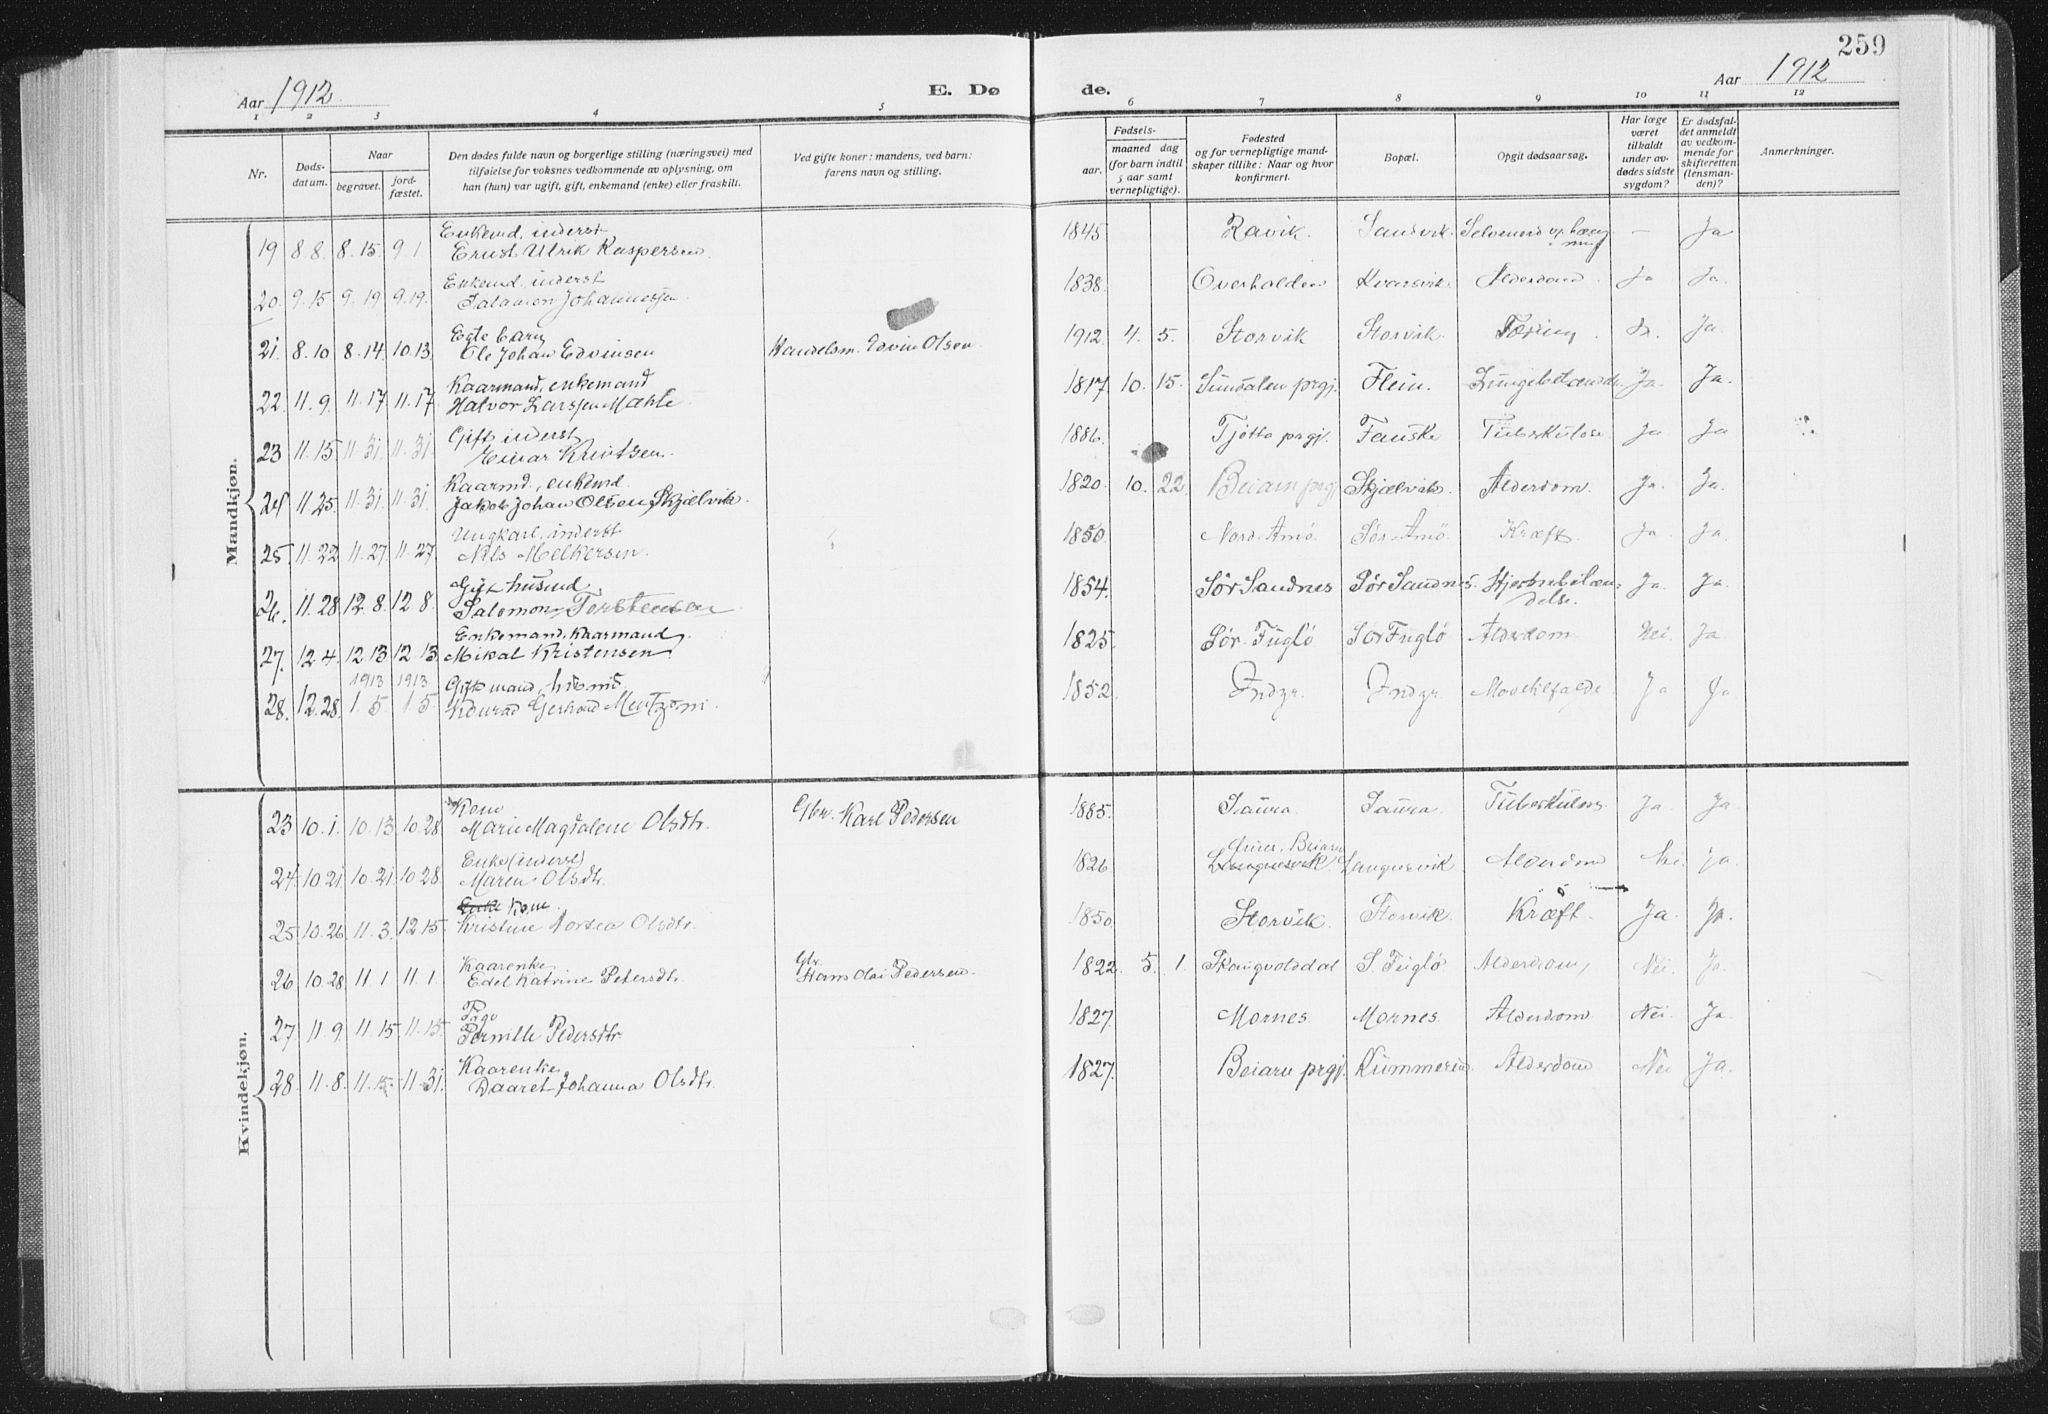 259
Aar 1912
E. Dø
de.
Aar 1912
1 2 3 4 5 6 7 8 9 10 11 12
Nr.
Døds-
datum.
Naar
begravet.
jord-
fæstet.
Den dødes fulde navn og borgerlige stilling (næringsvei) med
tilføielse for voksnes vedkommende av oplysning, om
han (hun) var ugift, gift, enkemand (enke) eller fraskilt.
Ved gifte koner: mandens, ved barn:
farens navn og stilling.
Fødsels-
aar.
maaned dag
(for barn indtil
5 aar samt
vernepligtige).
Fødested
og for vernepligtige mand-
skaper tillike: Naar og hvor
konfirmert.
Bopæl.
Opgit dødsaarsag.
Har læge
været
tilkaldt
under av-
dødes sidste
sygdom?
Er dødsfal-
det anmeldt
av vedkom-
mende for
skifteretten
(lensman-
den)?
Anmerkninger.
Mandkjøn.
Enkemd. inderst
19 8.8. 8.15. 9.1 Ernst Ulrik Kaspersen 1845 Ravik. Sandvik. Selvmord Ja
Enkemd. inderst
20. 9.15 9.19 9.19. Salamon Johannessen 1838. Overhalden Kvarsvik. Alderdom. Ja Ja.
Egte barn
21. 8.10 8.14. 10.13. Ole Johan Edvinsen Handelsm. Edvin Olsen. 1912 4. 5. Storvik Storvik Ja.
Kaarmand, enkemand
22. 11.9. 11.17 11.17 Halvor Larssen Mæhle 1817 10. 15. Sundalen prgj. Flein. Lungebetændelse Ja. Ja.
Gift inderst
23 11.15 11.31 11.31. Einar Knutsen. 1886. Tjøtta prgj. Fauske Tuberkulose Ja Ja
Kaarmd., enkemd.
24 11.25. 11.31 11.31. Jakob Johan Olsen Skjælvik. 1820. 10. 22. Beiarn prgj Skjælvik. Alderdom. Ja. Ja.
Ungkarl, inderst
25. 11.22 11.27. 11.27 Nils Melkersen. 1850. Nord-Arnø Sør-Arnø Kræft. Ja. Ja.
Gift husmd
26. 11.28 12.8. 12.8. Salomon Torstensen 1854. Sør Sandnes Sør Sandnes. Hjertebetæn-
delse. Ja. Ja.
Enkemand, Kaarmand
27. 12.4. 12.13 12.13 Mikal Kristensen. 1825. Sør-Fuglø Sør Fuglø Alderdom Nei. Ja
1913 1913 Gift mand,
28. 12.28. 1.5 1.5 Konrad Gerhard Mentzoni. 1852. Indgr. Indgr. Ja Ja
Kvindekjøn.
Kone
23 10.1. 10.13. 10.28 Marie Magdalene Olsdtr. Gbr. Karl Pedersen 1885. Saura Saura. Tuberkulose Ja. Ja.
Enke (inderst)
24. 10.21. 10.21 10.28 Maren Olsdtr. 1826 Beiarn Langvik Alderdom Nei. Ja.
Enke Kone.
25. 10.26 11.3. 12.15. Kristine Dortea Olsdtr. 1850. Storvik. Storvik. Kræft. Ja. Ja.
Kaarenke Gbr.
26 10.28. 11.1 11.1. Edel Katrine Petersdtr. Hans Olai Pedersen. 1822. 5. 1. S. Fuglø. Alderdom, Nei. Ja.
27. 11.9. 11.15. 11.15. Pernille Pedersdtr. 1827. Mornes Mornes. Alderdom Nei. Ja.
Kaarenke
28. 11.8. 11.15. 11.31. Daaret Johanna Olsdtr. 1827. Beiarn prgj. Alderdom Nei Ja.